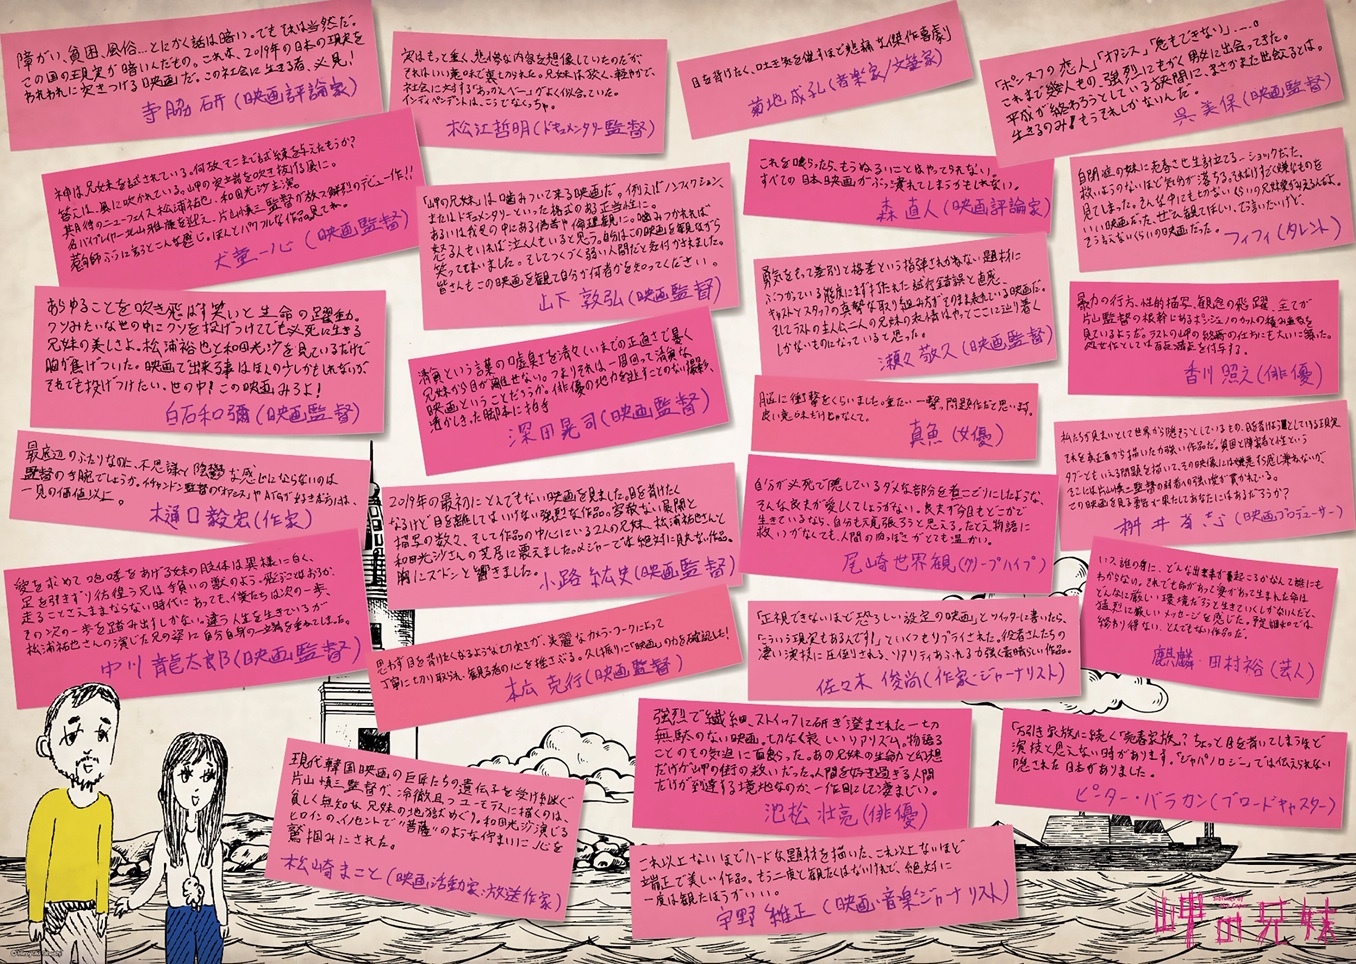 障がい、貧困、風俗…とにかく話は暗い。でもそれは当然だ。
この国の現実が暗いんだもの。これは、2019年の日本の現実を
われわれに突きつける映画だ。この社会に生きる者、必見！
寺脇 研（映画評論家）
実はもっと重く、悲惨な内容を想像していたのだが、
それはいい意味で裏切られた。兄妹は欲く、軽やかで、
社会に対する「あっかんべー」がよく似合っていた。
インディペンデントは、こうでなくっちゃ。
松江哲明（ドキュメンタリー監督）
目を背けたく、吐き気を催すほど悲痛な傑作喜劇
菊地 成孔（音楽家/文筆家）
「ポンヌフの恋人」「オアシス」「息もできない」……。
これまで幾人もの、強烈にもがく男女に出会ってきた。
平成が終わろうとしている狭間に、まさかまた出会えるとは。
生きるのみ！もうそれしかないんだ。
呉 美保（映画監督）
神は兄妹を試されている。何故そこまで試練を与えたもうか？
答えは、風に吹かれている。岬の突端を吹き抜ける風に。
期待のニューフェイス松浦祐也、和田光沙主演。
名バイプレイヤー北山雅康を迎え、片山慎三監督が放つ鮮烈のデビュー作！！
犬童一心（映画監督）
「岬の兄妹」は噛みついて来る映画だ。例えばノンフィクション、
またはドキュメンタリーといった格式のある正当性に。
あるいは我々の中にある偽善や倫理観に。噛みつかれれば
怒る人もいれば泣く人もいると思う。自分はこの映画を観ながら
笑ってしまいました。そしてつくづく弱い人間だと気付かされました。
皆さんもこの映画を観て自分が何者かを知ってください。
山下 敦弘（映画監督）
これを喰らったら、もうぬるいことはやってられない。
すべての日本映画がぶっ潰れてしまうかもしれない。
森 直人（映画評論家）
自閉症の妹に売春させ生計立てる…ショックだった。
救いようのないほど気分が落ちる。
フィフィ（タレント）
あらゆることを吹き飛ばす笑いと生命の躍動。
クソみたいな世の中にクソを投げつけてでも必死に生きる
兄妹の美しさよ。松浦祐也と和田光沙を見ているだけで
胸が焦げついた。映画で出来る事はほんの少しかもしれないが
それでも投げつけたい、世の中に！この映画みろよ！
白石和彌（映画監督）
清貧という言葉の嘘臭さを清々しいまでの正直さで暴く
兄妹から目が離せない。つまりそれは、一周回って清貧な
映画ということだろうか。俳優の地力を逃すことのない撮影と、
透かしきった脚本に拍手
深田晃司（映画監督）
勇気をもって差別と格差という指弾されかねない題材に
ぶつかっている態度にまず打たれた。試行錯誤と直感、
キャストとスタッフの真摯な取り組み方がそのまま表れている映画だ。
そしてラストの主人公二人の兄妹の表情はやってここに辿り着く
しかないものになっていると思った。
瀬々 敬久（映画監督）
暴力の行方、性的描写、観念の飛躍、全てが
香川 照之（俳優）
脳に衝撃をくらいました。重たい一撃。問題作だと思います。
良い意味だけじゃなくて。
真魚（女優）
最底辺のふたりなのに、不思議と陰鬱な感じにならないのは
監督の手腕でしょうか。イ・チャンドン監督の「オアシス」やATGが好きな方は、
一見の価値以上。
樋口毅宏（作家）
2019年の最初にとんでもない映画を見ました。目を背けたく
なるけど目を離してはいけない強烈な作品。容赦ない展開と
描写の数々、そして作品の中心にいる2人の兄妹、松浦祐也さんと
和田光沙さんの芝居に震えました。メジャーでは絶対に見れない作品。
胸にズドンと響きました。
小路 紘史（映画監督）
自分が必死で隠しているダメな部分を煮こごりにしたような、
そんな良夫が愛しくてしょうがない。良夫が今日もどこかで
生きているなら、自分も元気張ろうと思える。たとえ物語に
救いがなくても、人間の肉っぽさがとても温かい。
尾崎世界観（クリープハイプ）
桝井省志（映画プロデューサー）
愛を求めて咆哮をあげる妹の肢体は異様に白く、
足を引きずり彷徨う兄は手負いの獣のよう。飛ぶことはおろか、
走ることさえままならない時代にあっても、僕たちは次の一歩、
その次の一歩を踏み出すしかない。違う人生を生きているが
松浦祐也さんの演じた兄の姿に自分自身の一端を重ねてました。
中川 龍太郎（映画監督）
思わず目を背けたくなるような妹との突きが、美麗なカメラ・ワークによって
丁寧に切り取られ、観る者の心を揺さぶる。久し振りに"映画"のカを確認した！
本広 克行（映画監督）
「正視できないほど恐ろしい設定の映画」とツイッターに書いたら、
「こういう現実もあるんです！」といくつもリプライされた。役者さんたちの
凄い演技に圧倒される、リアリティあふれる力強く素晴らしい作品。
佐々木 俊尚（作家・ジャーナリスト）
いつ、誰の身に、どんな出来事が巻起こるかなんて誰にも
わからない。それでも命があって愛があって生まれた命は
どんなに厳しい環境だろうと生きていくしかないんだと、
猛烈に厳しいメッセージを感じた。予定調和では
終わり得ない、とんでもない作品だ。
麒麟・田村裕（芸人）
現代韓国映画の巨匠たちの遺伝子を受け継ぐ
片山慎三監督が、冷徹且つユーモラスに描くのは、
貧しく無知な兄妹の地獄めぐり。和田光沙演じる
ヒロインのイノセントで"菩薩"のような佇まいに心を
鷲掴みにされた。
松崎まこと（映画活動家・放送作家）
強烈で繊細、ストイックに研ぎ澄まされた一切
無駄のない映画。切なく哀しいリアリズム。物語る
ことのその気迫に面喰らった。あの兄妹の生命力と幻想
だけが岬の街の救いだった。人間を好き過ぎる人間
だけが到達する境地なのか、一作目にして凄まじい。
池松 壮亮（俳優）
「万引き家族」に続く「売春家族」？ちょっと目を背いてしまうほど
演技と思えない時があります。「ジャパノロジー」では伝えられない
隠された日本がありました。
ピーター・バラカン（ブロードキャスター）
これ以上ないほどハードな題材を描いた、これ以上ないほど
端正で美しい作品。もう二度と観たくはないけれど、絶対に
一度は観たほうがいい。
宇野 維正（映画・音楽ジャーナリスト）
岬の兄妹